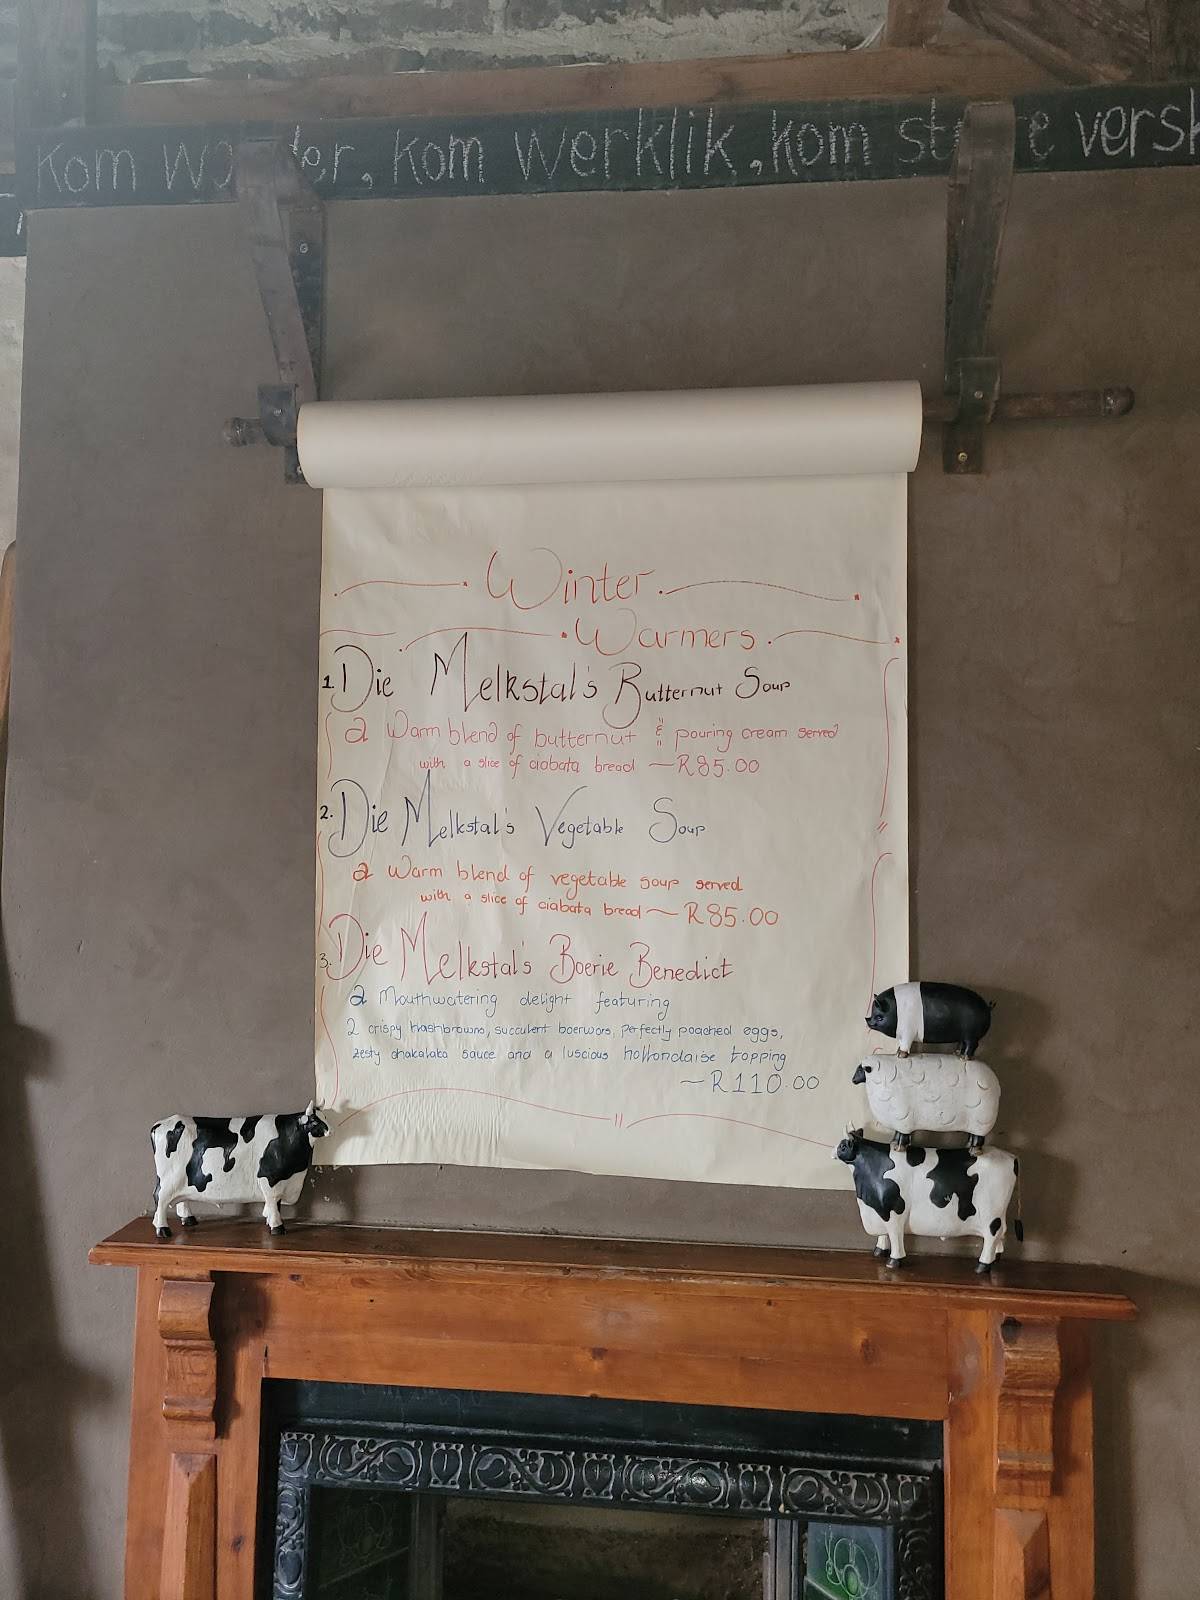 Kom w der, kom werklik, kom st e versk
Winter
Warmers
1. Die Melkstal's Butternut Soup
a Warm blend of butternut & pouring cream served
with a slice of ciabata bread — R85.00
2. Die Melkstal's Vegetable Soup
a Warm blend of vegetable soup served
with a slice of ciabata bread — R85.00
3. Die Melkstal's Boerie Benedict
a Mouthwatering delight featuring
2 crispy hashbrowns, succulent boerwors, perfectly poached eggs,
zesty chakalaka sauce and a luscious hollondaise topping
— R110.00